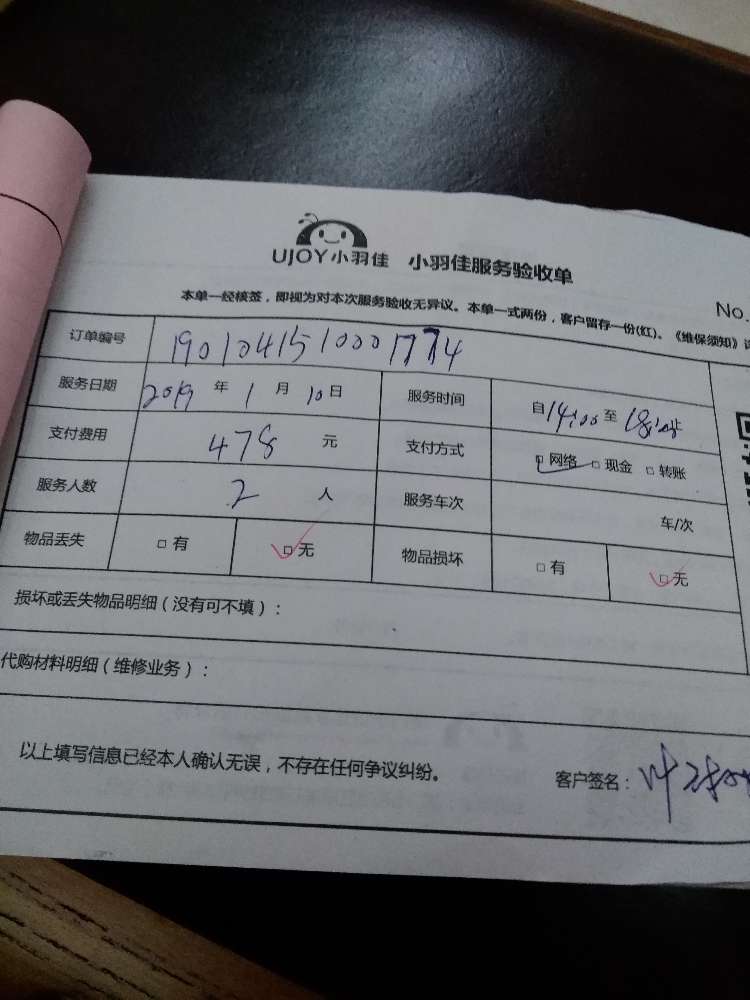 UJOY小羽佳 小羽佳服务验收单
No.
本单一经核签，即视为对本次服务验收无异议。本单一式两份，客户留存一份(红)。《维保须知》
订单编号 1901041510001774
服务日期 2019 年 1 月 10 日 服务时间 自14:00 至 18:00
支付费用 478 元 支付方式 □网络 □现金 □转账
服务人数 2 人 服务车次 车/次
物品丢失 □有 □无 物品损坏 □有 □无
损坏或丢失物品明细（没有可不填）：
代购材料明细（维修业务）：
以上填写信息已经本人确认无误，不存在任何争议纠纷。 客户签名：叶